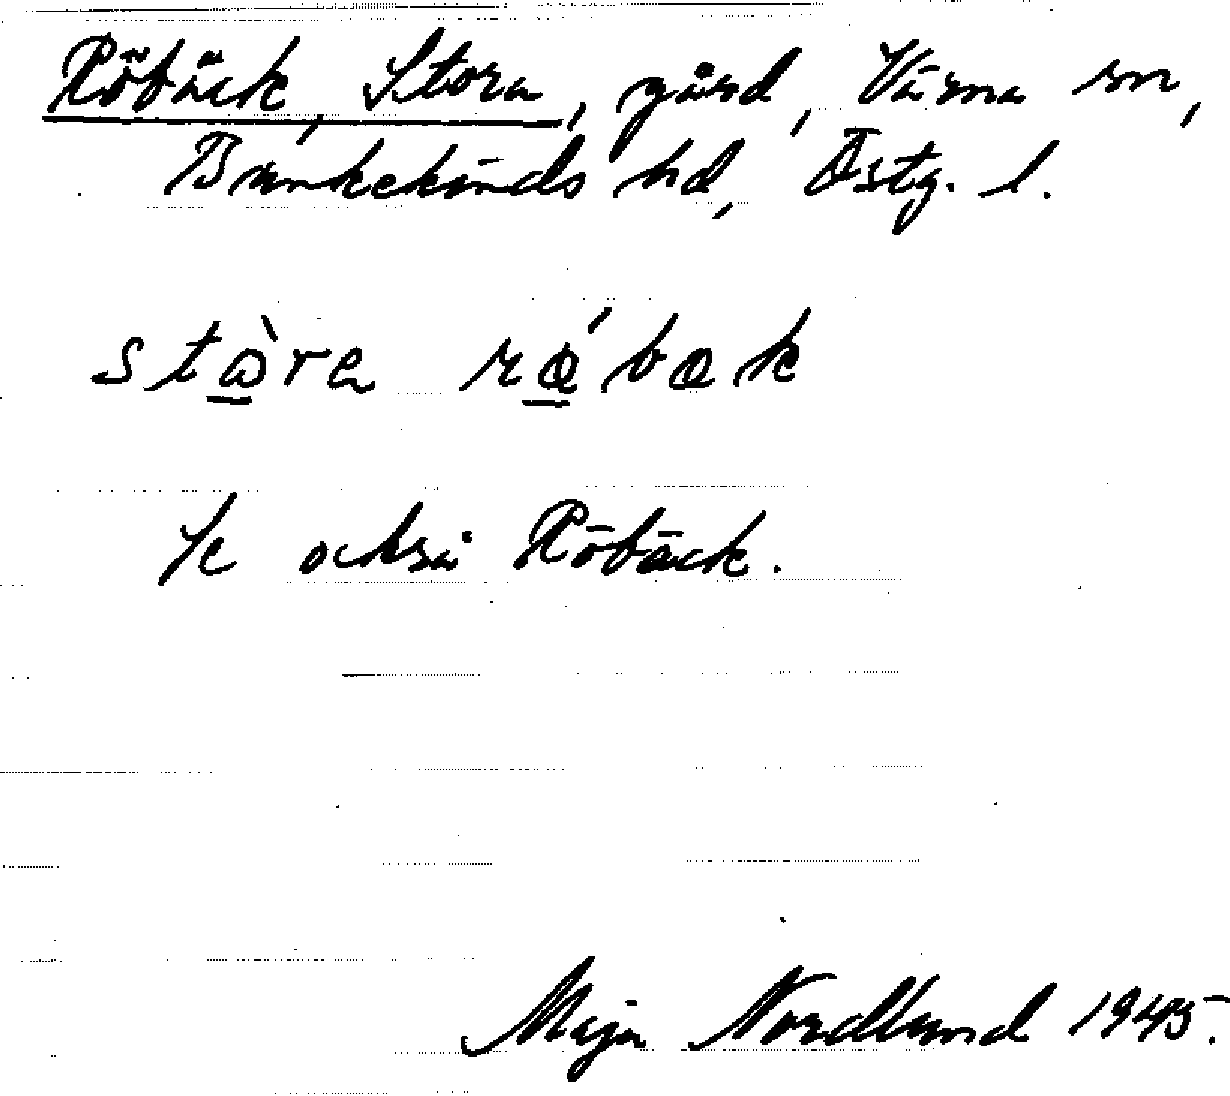 Röbäck, Stora, gård, Värna sn,
Bankekinds hd, Östg. l.
stὼ̲ra rə̲́bək
Se också Röbäck.
Maja Nordlund 1945.